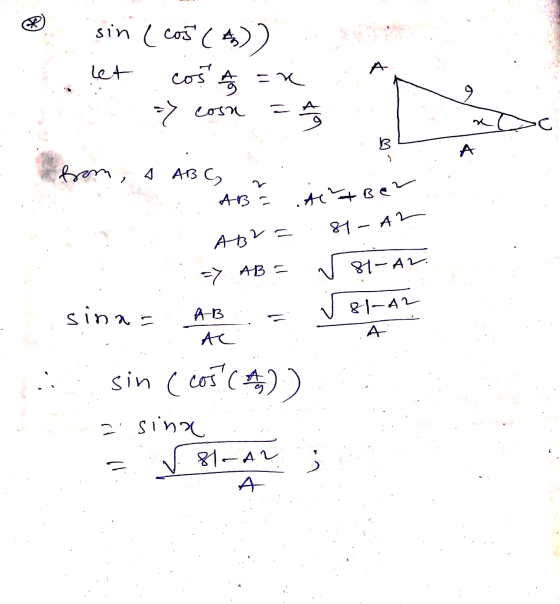 ⊛ sin ( cos⁻¹ ( A/9 ) )
let cos⁻¹ A/9 = x
=> cos x = A/9
A
9
x
C
B
A
from, Δ ABC,
AB² = AC² + BC²
AB² = 81 - A²
=> AB = √81-A²
sin x = AB/AC = √81-A²/A
∴ sin ( cos⁻¹ ( A/9 ) )
= sin x
= √81-A²/A ;